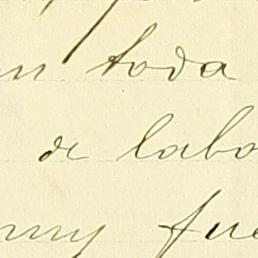 en toda
de labo
muy fue